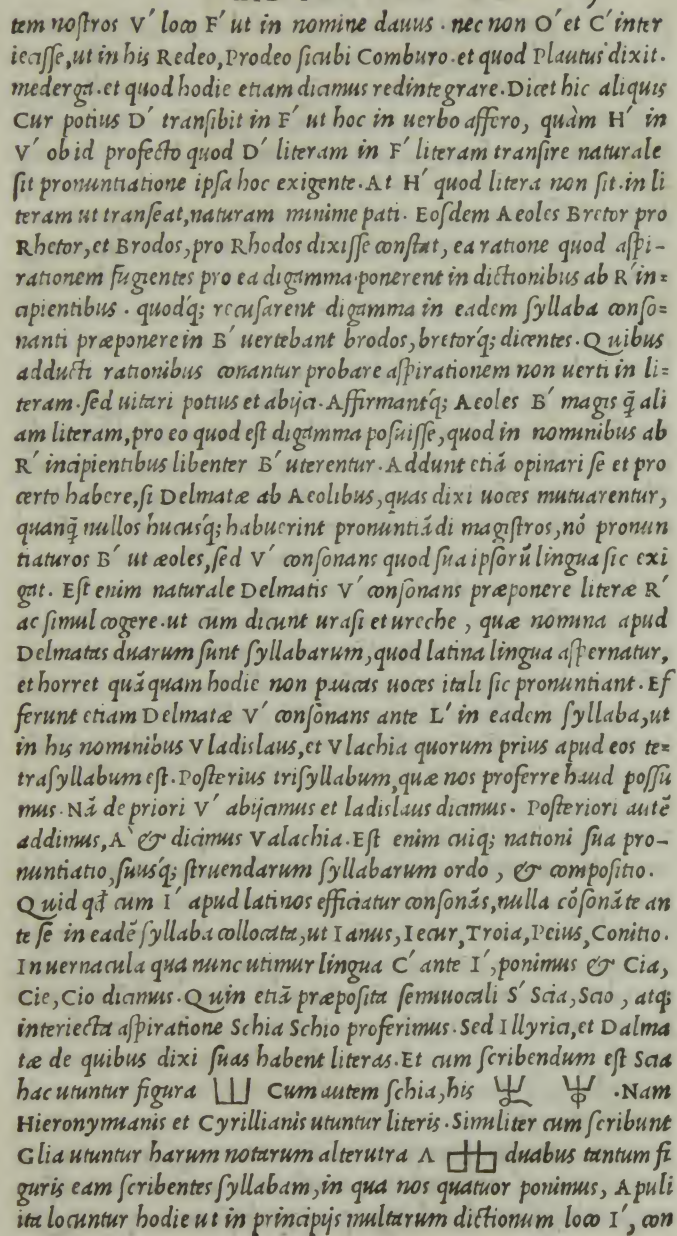 tem noſtros V´ loco F´ ut in nomine dauus . nec non O´ et C´ inter
ieciſſe, ut in his Redeo, Prodeo ſicubi Comburo. et quod Plautus dixit.
mederga. et quod hodie etiam dicimus redintegrare. Dicet hic aliquis
Cur potius D´ tranſibit in F´ ut hoc in uerbo affero, quàm H´ in
V´ ob id profecto quod D´ literam in F´ literam tranſire naturale
ſit pronuntiatione ipſa hoc exigente. At H´ quod litera non ſit. in li
teram ut tranſeat, naturam minime pati. Eoſdem Aeoles Bretor pro
Rhetor, et Brodos, pro Rhodos dixiſſe conſtat, ea ratione quod aſpi-
rationem fugientes pro ea digamma ponerent in dictionibus ab R´ in=
cipientibus . quodq́; recuſarent digamma in eadem ſyllaba conſo=
nanti præponere in B´ uertebant brodos, bretorq́; dicentes. Quibus
adducti rationibus conantur probare aſpirationem non uerti in li=
teram. ſed uitari potius et abijci. Affirmantq́; Aeoles B´ magis q̃ ali
am literam, pro eo quod eſt digamma poſuiſſe, quod in nominibus ab
R´ incipientibus libenter B´ uterentur. Addunt etiã opinari ſe et pro
certo habere, ſi Delmatæ ab Aeolibus, quas dixi uoces mutuarentur,
quanq̃ nullos hucuſq́; habuerint pronuntiãdi magiſtros, nõ pronun
tiaturos B´ ut æoles, ſed V´ conſonans quod ſua ipſorũ lingua ſic exi
gat. Eſt enim naturale Delmatis V´ conſonans præponere literæ R´
ac ſimul cogere. ut cum dicunt uraſi et ureche , quæ nomina apud
Delmatas duarum ſunt ſyllabarum, quod latina lingua aſpernatur,
et horret quãquam hodie non paucas uoces itali ſic pronuntiant. Ef
ferunt etiam Delmatæ V´ conſonans ante L´ in eadem ſyllaba, ut
in his nominibus Vladislaus, et Vlachia quorum prius apud eos te=
traſyllabum eſt. Poſterius triſyllabum, quæ nos proferre haud poſſu
mus. Nã de priori V´ abijcimus et ladislaus dicimus. Poſteriori autẽ
addimus, A` & dicimus Valachia. Eſt enim cuiq; nationi ſua pro-
nuntiatio, ſuuſq́; ſtruendarum ſyllabarum ordo , & compoſitio.
Quid qđ cum I´ apud latinos efficiatur conſonãs, nulla cõſonãte an
te ſe in eadẽ ſyllaba collocata, ut Ianus, Iecur, Troia, Peius, Conitio.
In uernacula qua nunc utimur lingua C´ ante I´, ponimus & Cia,
Cie, Cio dicimus. Quin etiã præpoſita ſemiuocali S´ Scia, Scio , atq;
interiecta aſpiratione Schia Schio proferimus. Sed Illyrici, et Dalma
tæ de quibus dixi ſuas habent literas. Et cum ſcribendum eſt Scia
hac utuntur figura Cum autem ſchia, his . Nam
Hieronymianis et Cyrillianis utuntur literis. Similiter cum ſcribunt
Glia utuntur harum notarum alterutra Λ duabus tantum fi
guris eam ſcribentes ſyllabam, in qua nos quatuor ponimus, Apuli
ita locuntur hodie ut in principijs multarum dictionum loco I´, con